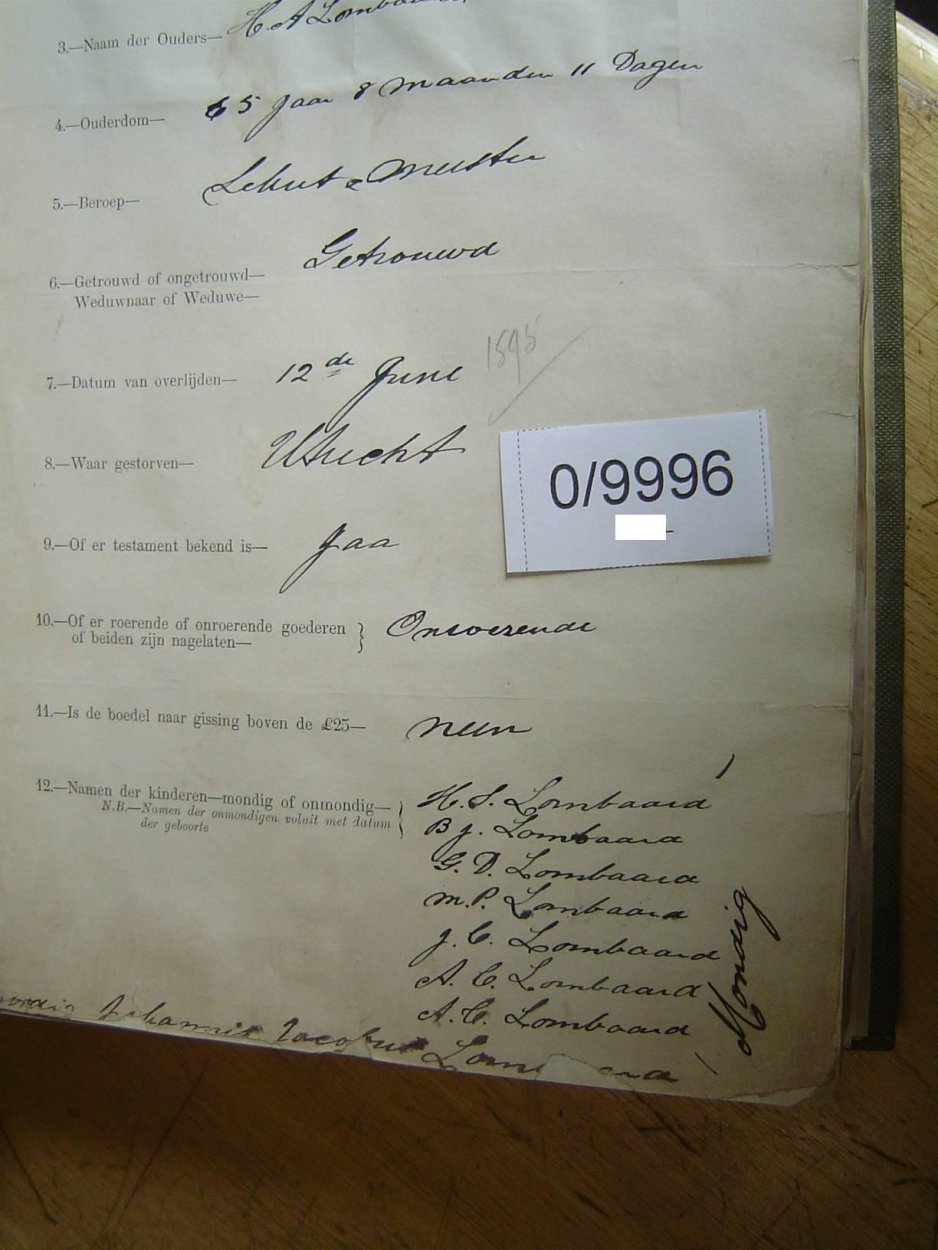 3.—Naam der Ouders— H. A Lombaard
4.—Ouderdom— 65 Jaar 8 maanden 11 Dagen
5.—Beroep— Schut Meester
6.—Getrouwd of ongetrouwd— Getrouwd
Weduwnaar of Weduwe—
7.—Datum van overlijden— 12de June 1895
8.—Waar gestorven— Utrecht
9.—Of er testament bekend is— Jaa
10.—Of er roerende of onroerende goederen } Onroerende
of beiden zijn nagelaten—
11.—Is de boedel naar gissing boven de £25— neen
12.—Namen der kinderen—mondig of onmondig— } H. S. Lombaard
N.B.—Namen der onmondigen voluit met datum B J. Lombaard
der geboorte
G. D. Lombaard
M. P. Lombaard
J. C. Lombaard
A. C. Lombaard
A. C. Lombaard
Mondig
Johannis Jacobus
0/9996